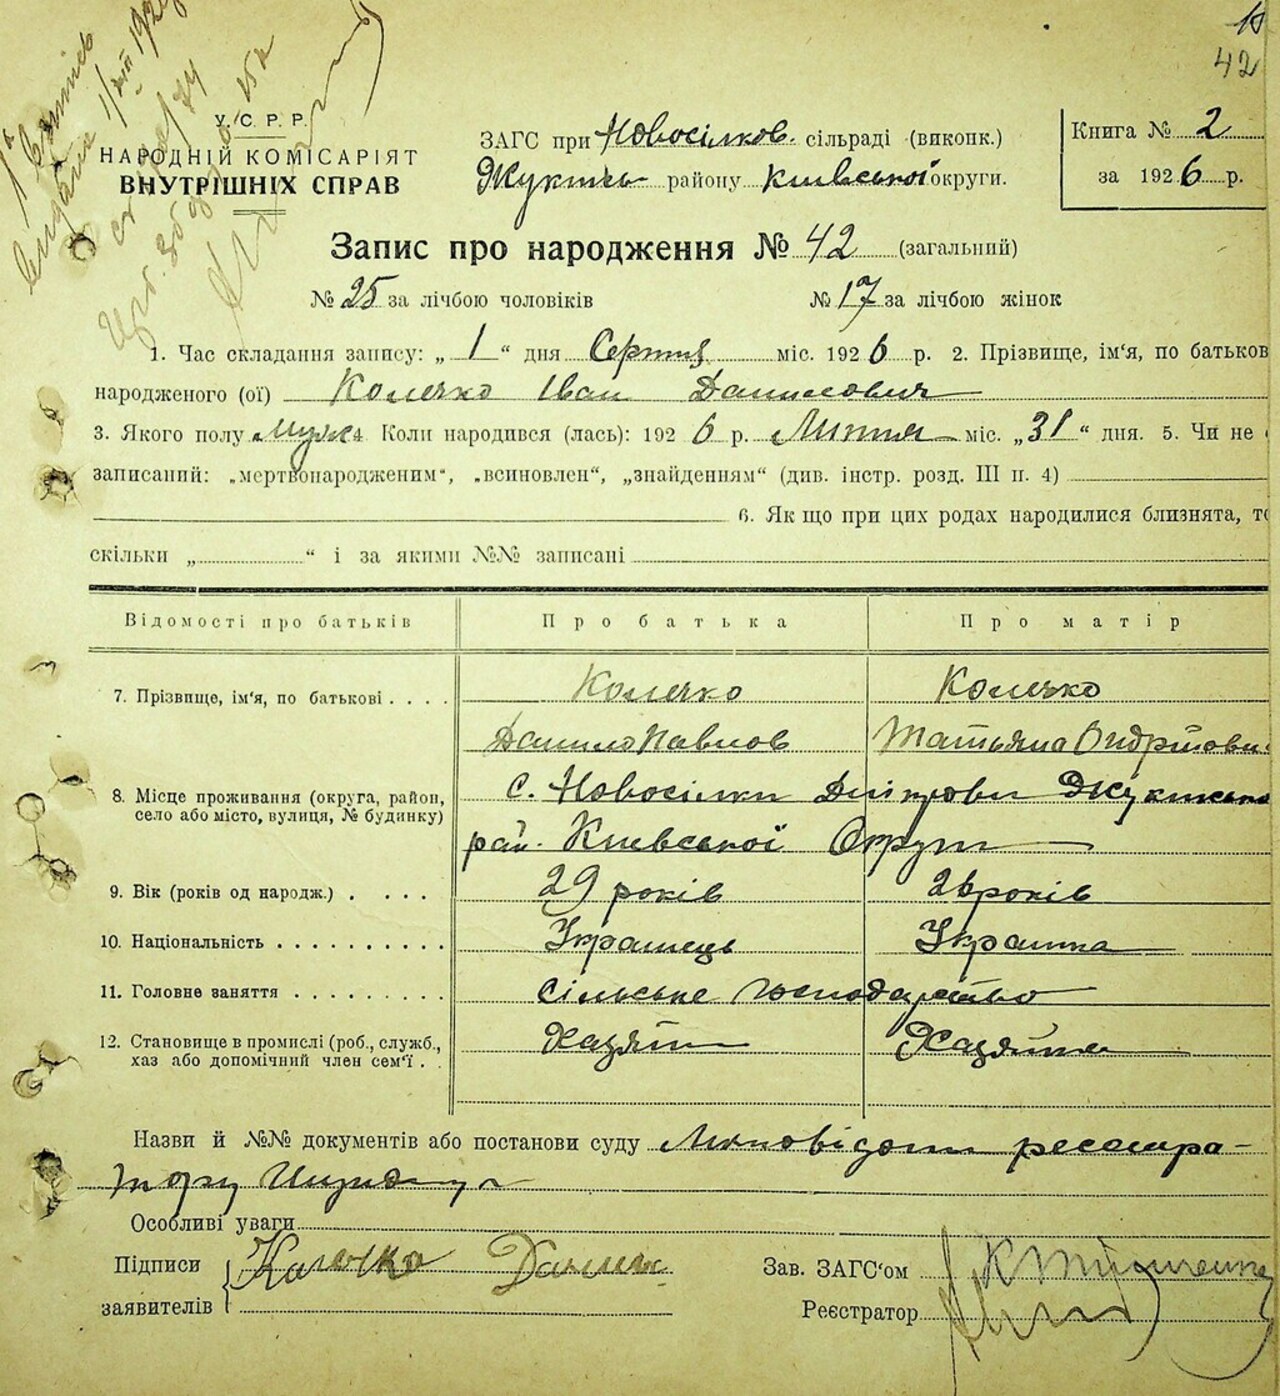 10
42
У. С. Р. Р.
НАРОДНІЙ КОМІСАРІЯТ
ВНУТРІШНІХ СПРАВ
ЗАГС при Новосілков. сільраді (виконк.)
Жукинсь району Київської округи.
Книга № 2
за 1926 р.
Запис про народження № 42 (загальний)
№ 25 за лічбою чоловіків
№ 17 за лічбою жінок
1. Час складання запису: „ 1 “ дня Серпня міс. 1926 р. 2. Прізвище, ім'я, по батьков
народженого (ої) Колечко Іван Данилович
3. Якого полу муж. 4 Коли народився (лась): 1926 р. Липня міс. „31“ дня. 5. Чи не
записаний: „мертвонародженим“, „всиновлен“, „знайденням“ (див. інстр. розд. III п. 4)
6. Як що при цих родах народилися близнята, то
скільки „ “ і за якими №№ записані
Відомості про батьків Про батька Про матір
7. Прізвище, ім'я, по батькові . . . . Колечко Колечко
Данило Павлов Татьяна
8. Місце проживання (округа, район, село або місто, вулиця, № будинку) с. Новосілки Дніпрови Жукинсько
рай. Київської Округи
9. Вік (років од народж.) . . . . 29 років 26 років
10. Національність . . . . . . . . . . Українець Українка
11. Головне заняття . . . . . . . . . Сільське господарство
12. Становище в промислі (роб., служб., хаз або допомічний член сем'ї . . Хазяїн Хазяйка
Назви й №№ документів або постанови суду реєстра-
тору
Особливі уваги
Підписи Колечко Данило
заявителів
Зав. ЗАГС'ом
Реєстратор